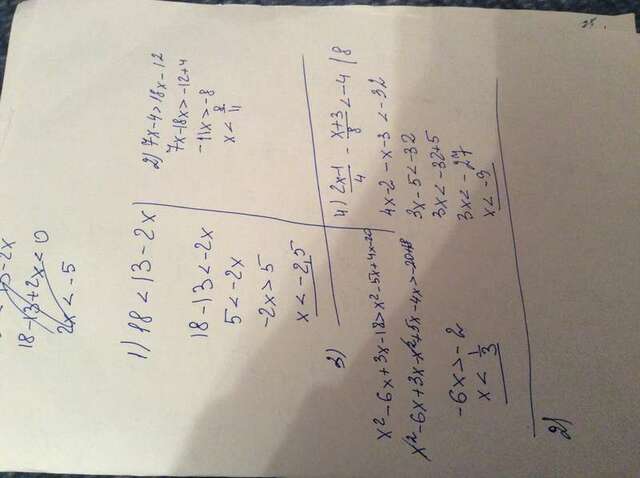 18-13+2x<0
2x<-5
1) 18<13-2x
18-13<-2x
5<-2x
-2x>5
x<-2,5
2) 7x-4>18x-12
7x-18x>-12+4
-11x>-8
x<8/11
3)
x²-6x+3x-18>x²-5x+4x-20
x²-6x+3x-x²+5x-4x>-20+18
-6x>-2
x<1/3
4) (2x-1)/4 - (x+3)/8<-4 |8
4x-2-x-3<-32
3x-5<-32
3x<-32+5
3x<-27
x<-9
2)